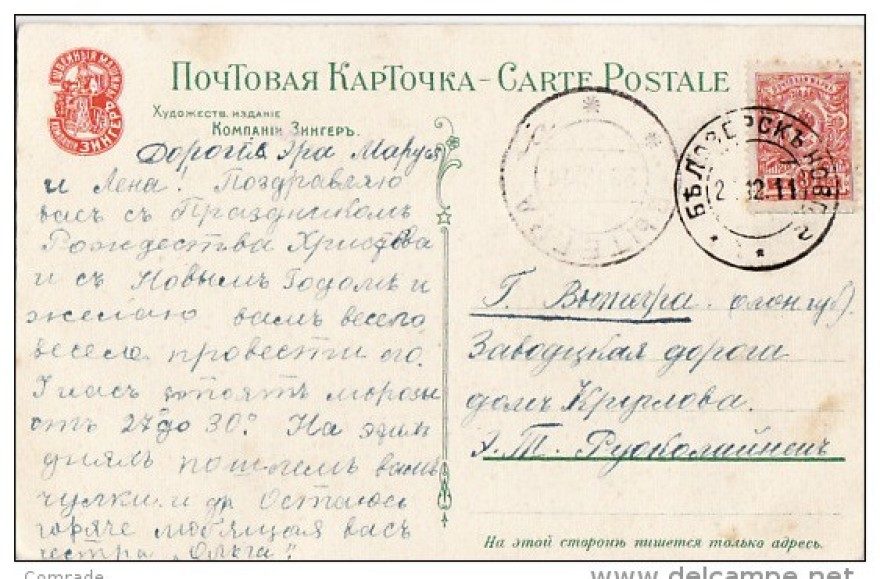 ШВЕЙНЫЯ МАШИНЫ
КОМПАНІИ ЗИНГЕРЪ
ПОЧТОВАЯ КАРТОЧКА – CARTE POSTALE
ХУДОЖЕСТВ. ИЗДАНІЕ
КОМПАНІИ ЗИНГЕРЪ.
Дорогія Эра Маруся
и Лена! Поздравляю
васъ съ Праздникомъ
Рождества Христова
и съ Новымъ Годомъ и
желаю вамъ весело
весело провести его.
У насъ стоятъ морозы
отъ 27° до 30°. На этихъ
дняхъ пошлемъ вамъ
чулки и др Остаюсь
горяче любящая васъ
сестра „Ольга"
БѢЛОЗЕРСКЪ НОВГ.
2 .12.11
ВЫТЕГРА
Г. Вытегра. олон. губ.
Заводцкая дорога
домъ Круглова.
На этой сторонѣ пишется только адресъ.
Comrade
www.delcampe.net